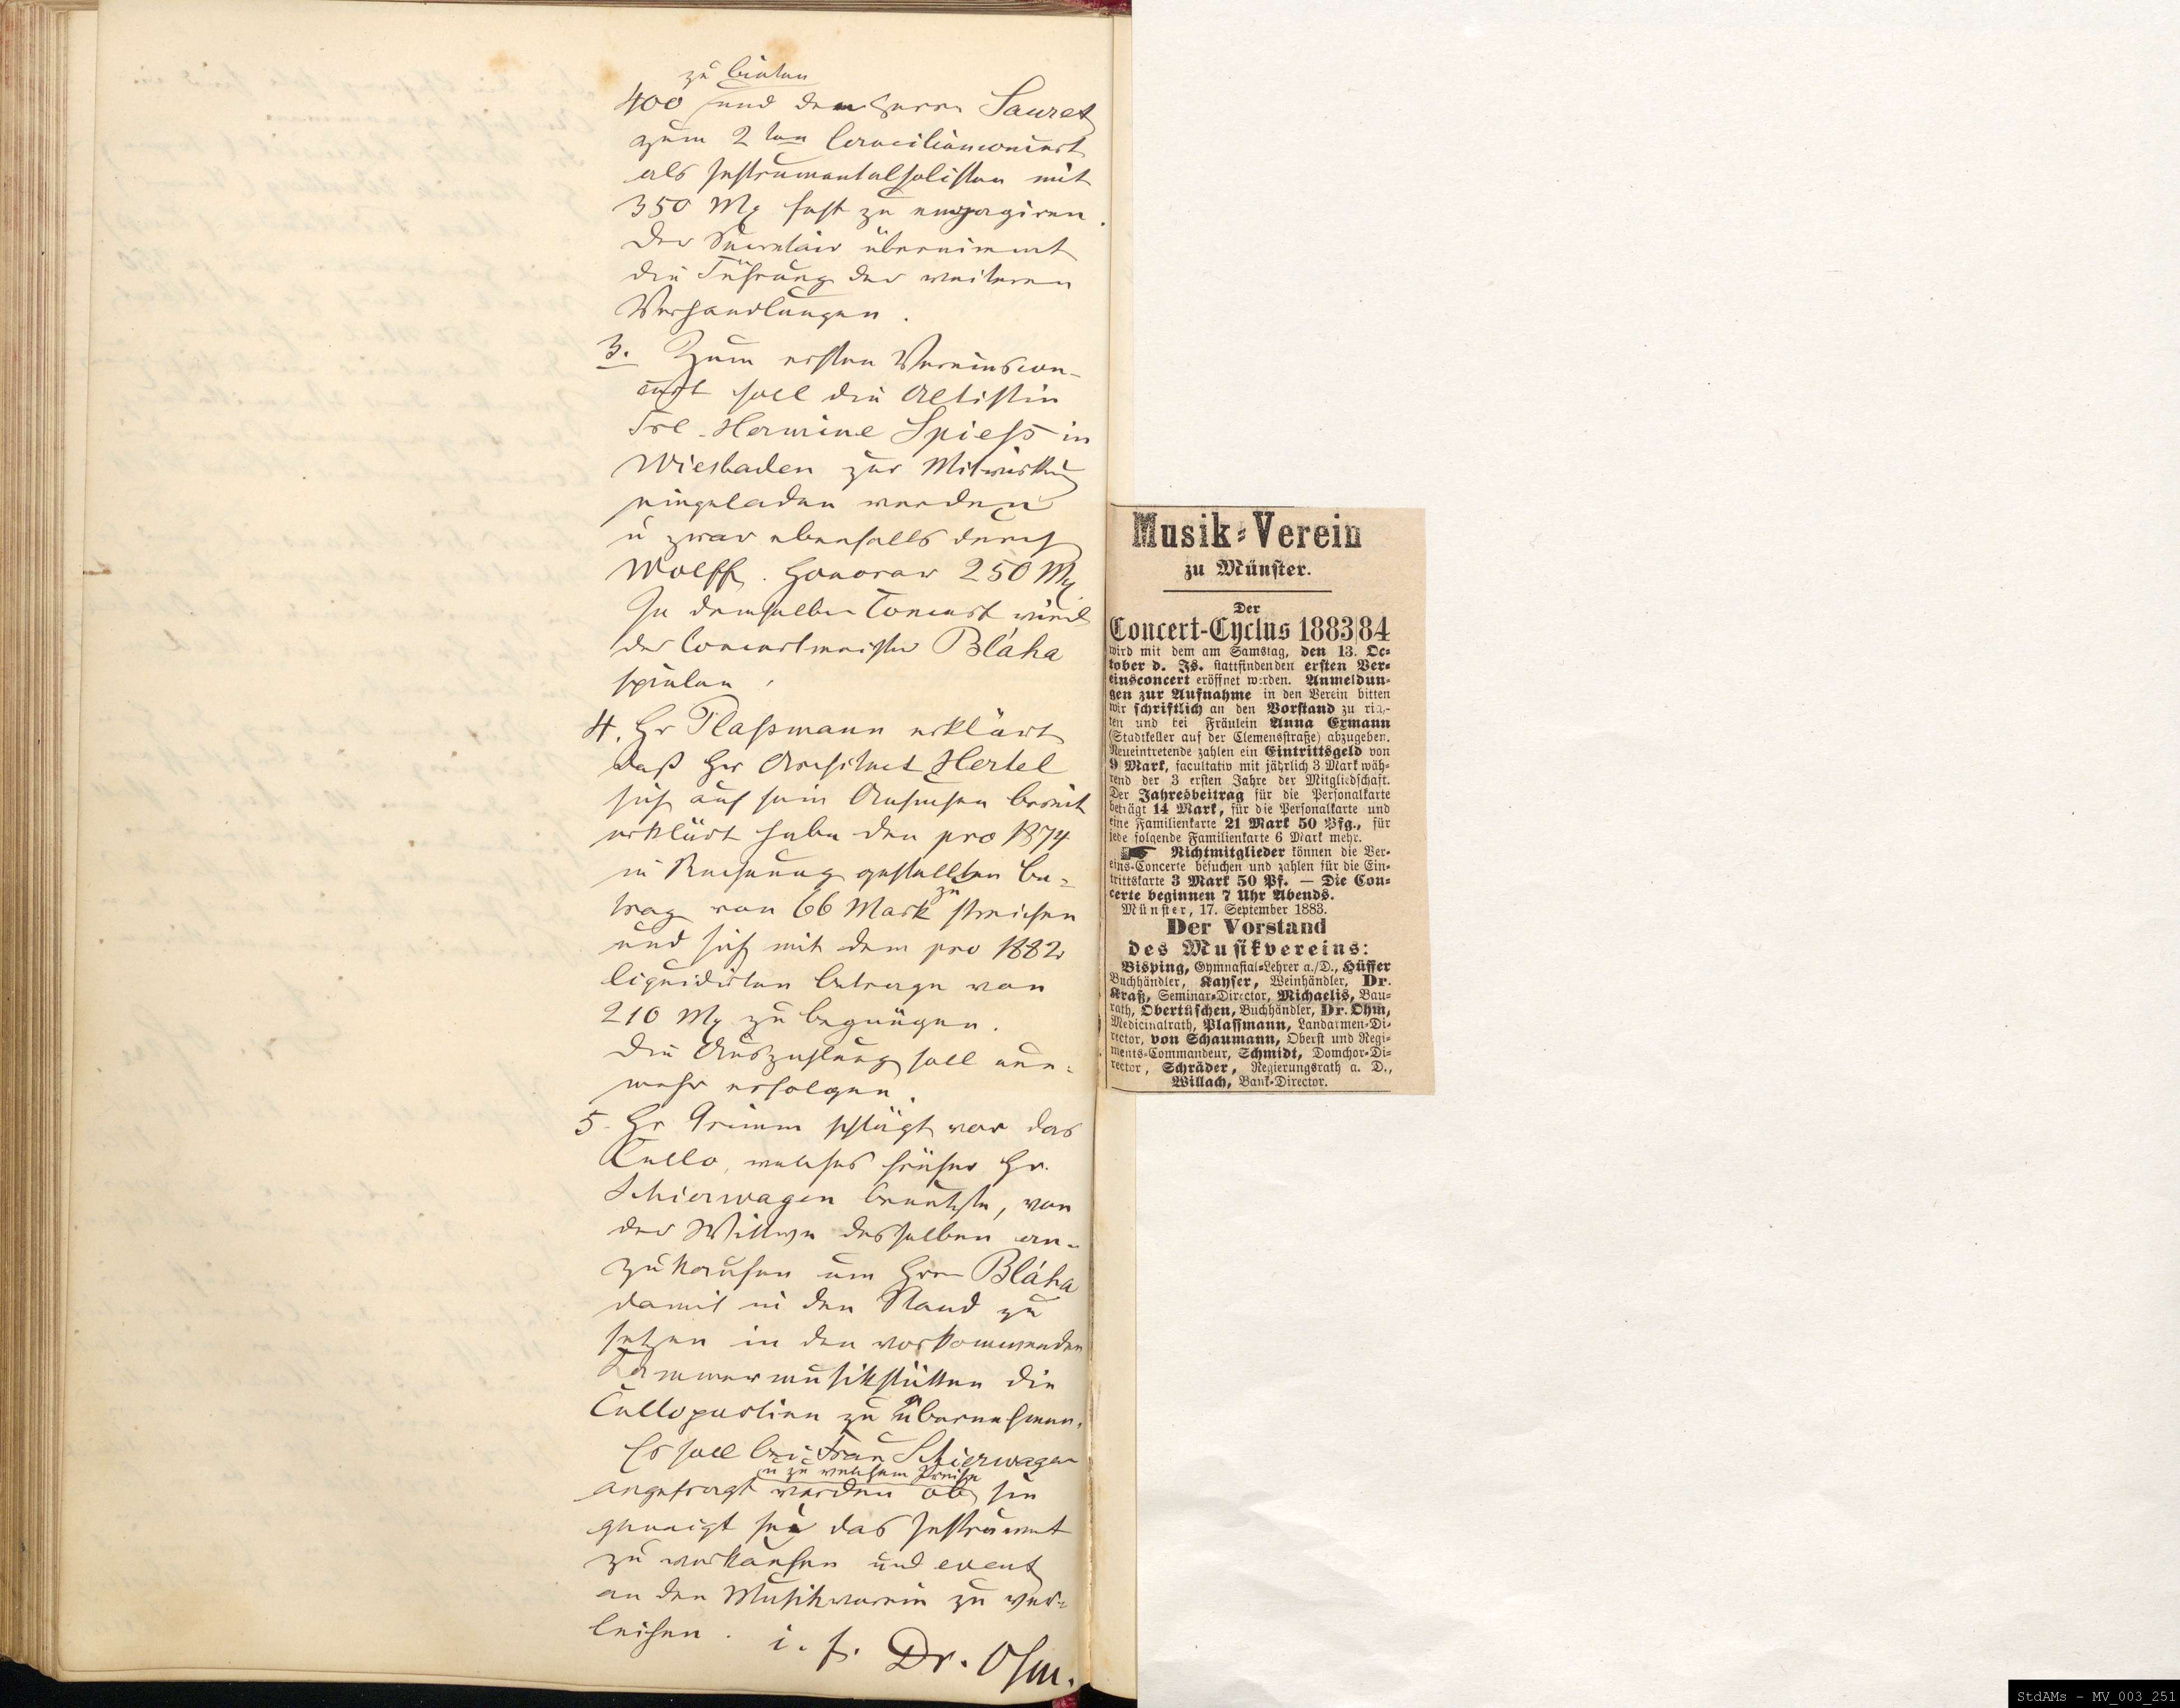 zu bieten
400 und dem Herrn Sauret
zum 2ten Caecilienconcert
als Instrumentalsolisten mit
350 Mk fest zu engagiren.
Der Secretair übernimmt
die Führung der weiteren
Verhandlungen.
3. Zum ersten Vereinscon-
cert soll die Altistin
Frl. Hermine Spiess in
Wiesbaden zur Mitwirkung
eingeladen werden
u zwar ebenfalls durch
Wolff. Honorar 250 Mk
In demselben Concert wird
der Concertmeister Bláha
spielen.
4. Hr Plaßmann erklärt
daß Herr Architect Hertel
sich auf sein Ansuchen bereit
erklärt habe den pro 1874
in Rechnung gestellten Be-
zu
trag von 66 Mark streichen
und sich mit dem pro 1882
liquidirten Betrage von
210 Mk zu begnügen.
Die Auszahlung soll nun-
mehr erfolgen.
5. Hr Grimm schlägt vor das
Cello, welches früher Hr.
Schierwagen benutzte, von
der Wittwe desselben an-
zukaufen um Herrn Bláha
damit in den Stand zu
setzen in den vorkommenden
Kammermusikstücken die
Cellopartien zu übernehmen.
Es soll bei Frau Schierwagen
u zu welchem Preise
angefragt werden ob sie
geneigt sei das Instrument
zu verkaufen und event
an den Musikverein zu ver-
leihen. i. f. Dr. Ohm.
Musik-Verein
zu Münster.
Der
Concert-Cyclus 1883/84
wird mit dem am Samstag, den 13. Oc-
tober d. Js. stattfindenden ersten Ver-
einsconcert eröffnet werden. Anmeldun-
gen zur Aufnahme in den Verein bitten
wir schriftlich an den Vorstand zu rich-
ten und bei Fräulein Anna Exmann
(Stadtkeller auf der Clemensstraße) abzugeben.
Neueintretende zahlen ein Eintrittsgeld von
9 Mark, facultativ mit jährlich 3 Mark wäh-
rend der 3 ersten Jahre der Mitgliedschaft.
Der Jahresbeitrag für die Personalkarte
beträgt 14 Mark, für die Personalkarte und
eine Familienkarte 21 Mark 50 Pfg., für
jede folgende Familienkarte 6 Mark mehr.
☛ Nichtmitglieder können die Ver-
eins-Concerte besuchen und zahlen für die Ein-
trittskarte 3 Mark 50 Pf. — Die Con-
certe beginnen 7 Uhr Abends.
Münster, 17. September 1883.
Der Vorstand
des Musikvereins:
Bisping, Gymnasial-Lehrer a./D., Hüffer
Buchhändler, Kayser, Weinhändler, Dr.
Kraß, Seminar-Director, Michaelis, Bau-
rath, Obertüschen, Buchhändler, Dr. Ohm,
Medicinalrath, Plassmann, Landarmen-Di-
rector, von Schaumann, Oberst und Regi-
ments-Commandeur, Schmidt, Domchor-Di-
rector, Schräder, Regierungsrath a. D.,
Willach, Bank-Director.
StdAMs - MV_003_251